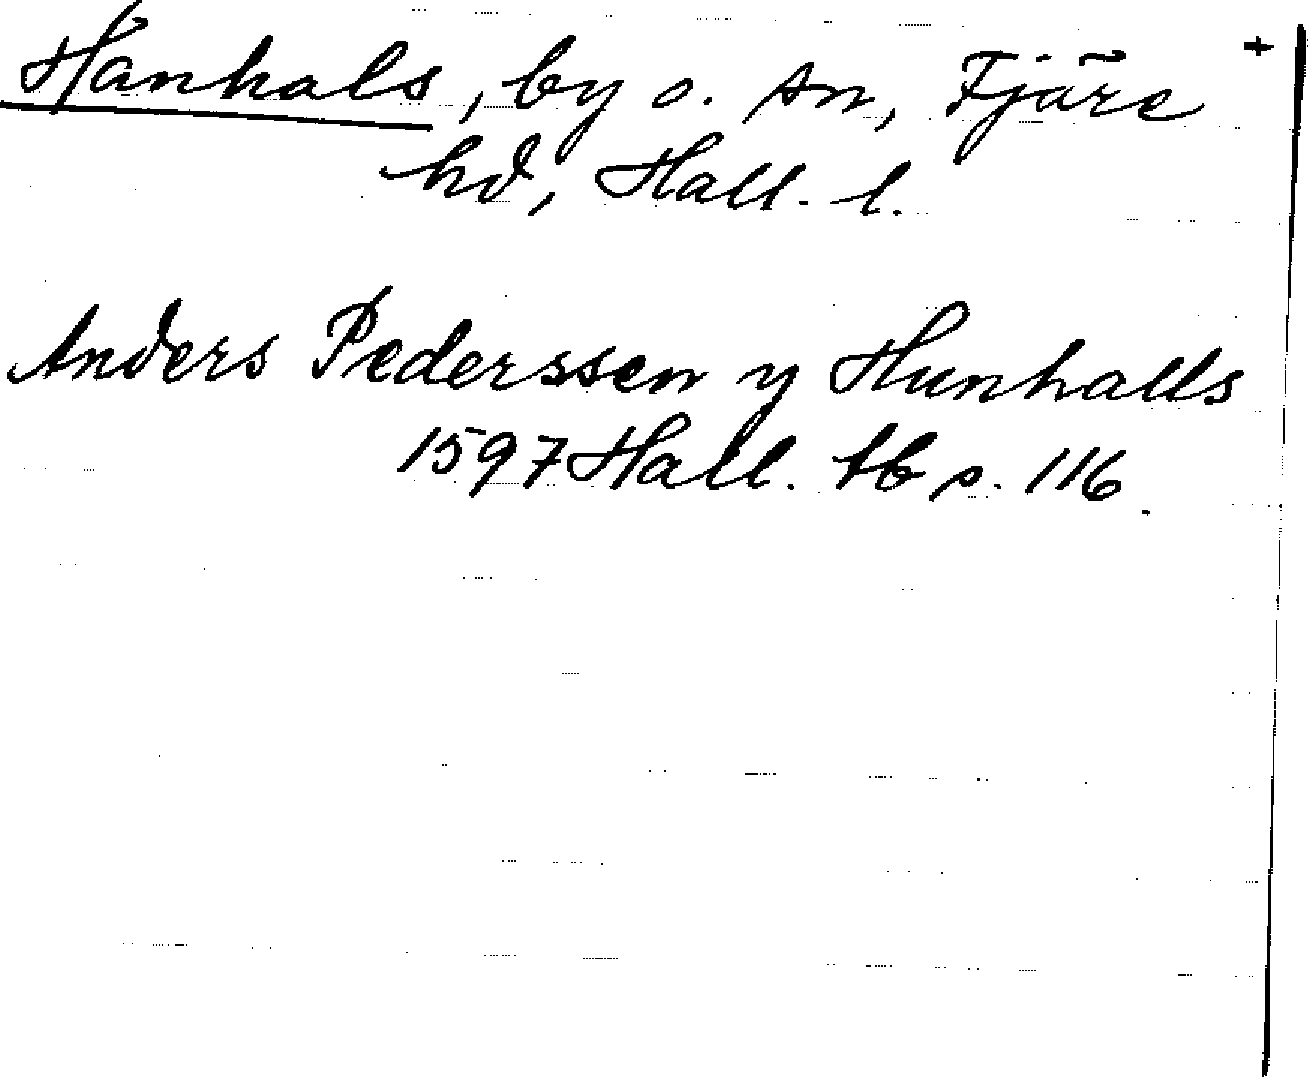 Hanhals, by o. sn, Fjäre +
hd, Hall. l.
Anders Pederssen y Hunhalls
1597 Hall. tb s. 116.